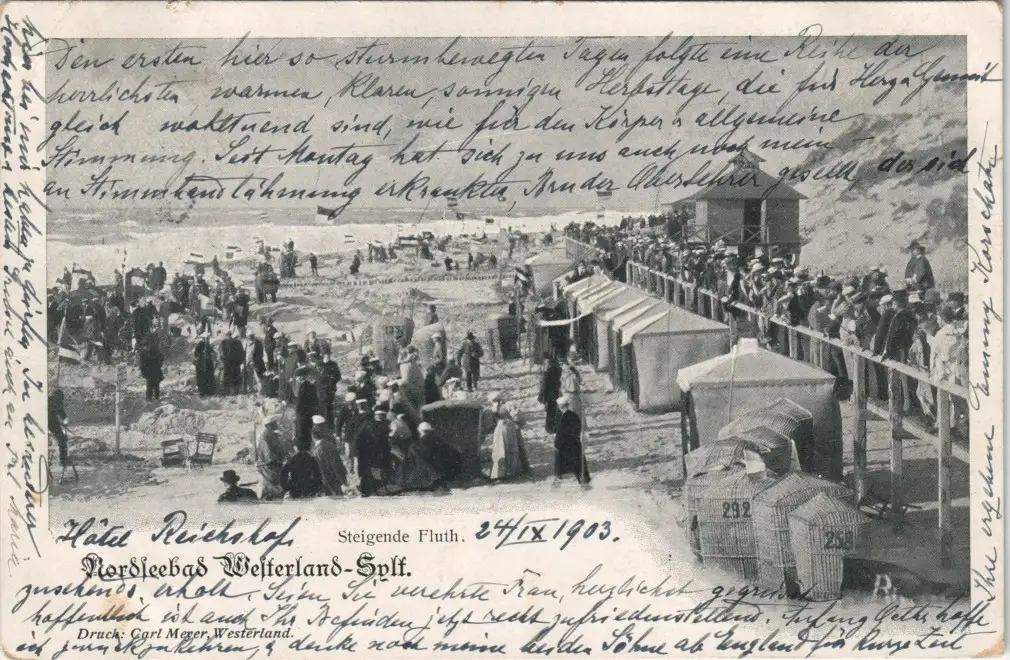 Den ersten hier so sturmbewegten Tagen folgte eine Reihe der
herrlichsten warmen, klaren, sonnigen Herbsttage, die für Herz u Gemüt
gleich wohltuend sind, wie für den Körper u allgemeine
Stimmung. Seit Montag hat sich zu uns auch noch mein
an Stimmbandlähmung erkrankter Bruder Oberlehrer gesellt der sich
Hôtel Reichshof
Steigende Fluth. 24/IX 1903.
Nordseebad Westerland-Sylt.
zusehends erholt. Seien Sie verehrte Frau, herzlichst gegrüsst
hoffentlich ist auch Ihr Befinden jetzt recht zufriedenstellend. Anfang October hoffe
Druck: Carl Meyer, Westerland.
ich zurückzukehren, u denke noch meine beiden Söhne ab England für kurze Zeit
hier hin und haben zu dürfen. In besondrer
Ihre ergebene Emmy Korschatz
292
258